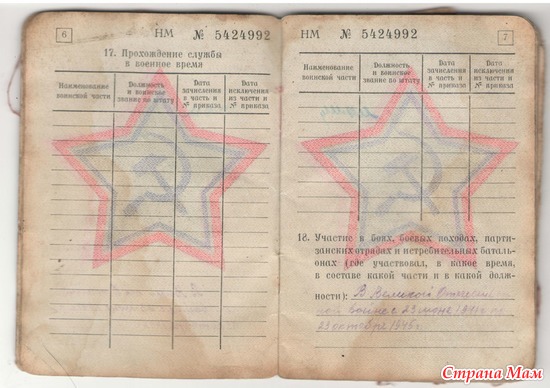 6
НМ № 5424992
17. Прохождение службы
в военное время
Наименование
воинской части
Должность
и воинское
звание по штату
Дата
зачисления
в часть и
№ приказа
Дата
исключения
из части и
№ приказа
НМ № 5424992
7
Наименование
воинской части
Должность
и воинское
звание по штату
Дата
зачисления
в часть и
№ приказа
Дата
исключения
из части и
№ приказа
18. Участие в боях, боевых походах, парти-
занских отрядах и истребительных баталь-
онах (где участвовал, в какое время,
в составе какой части и в какой долж-
ности): В Великой Отечествен
ной войне с 23 июня 1941г по
23 октября 1945г.
Страна Мам